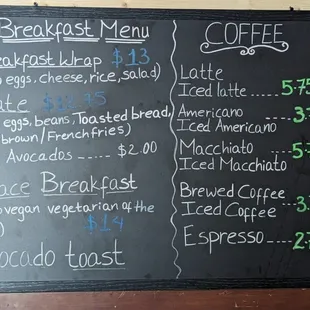 Breakfast Menu
eakfast Wrap $13
eggs, cheese, rice, salad)
ate
eggs, beans, Toasted bread,
brown/French fries)
Avocados ----- $2.00
ace Breakfast
vegan vegetarian of the
$14
ocado toast
COFFEE
Latte
Iced latte ...... 5.75
Americano
Iced Americano
Macchiato
Iced Macchiato
Brewed Coffee
Iced Coffee
Espresso